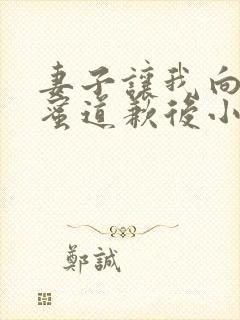 妻子讓我向
蜜道歉後小
鄭誠